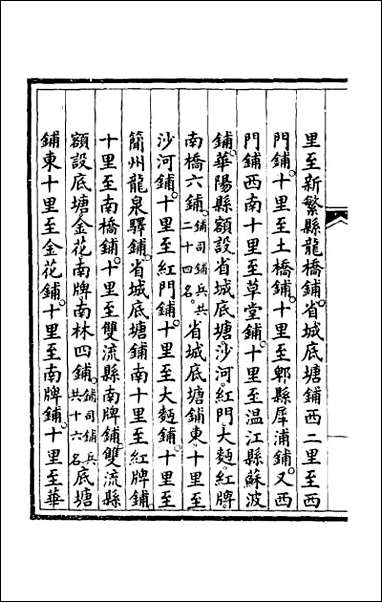 里至新繁縣龍橋鋪省城底塘鋪西二里至西
門鋪十里至土橋鋪十里至郫縣犀浦鋪又西
門鋪西南十里至草堂鋪十里至温江縣蘇波
鋪華陽縣額設省城底塘沙河紅門大麪紅牌
南橋六鋪鋪司鋪兵共二十四名省城底塘鋪東十里至
沙河鋪十里至紅門鋪十里至大麪鋪十里至
簡州龍泉驛鋪省城底塘鋪南十里至紅牌鋪
十里至南橋鋪十里至雙流縣南牌鋪雙流縣
額設底塘金花南牌南林四鋪鋪司鋪兵共十六名底塘
鋪東十里至金花鋪十里至南牌鋪十里至華